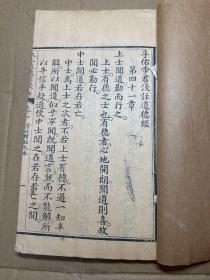 孚佑帝君淺註道德經
第四十一章
上士聞道勤而行之。
上士有德之士也有德者心地開朗聞道則喜故
聞必勤行。
中士聞道若存若亡
中士爲上士之次者不若上士有德不過一知半
解所以聞道似乎罕聞既聞道言無而不能解所
以半信半疑道使中士聞之在若存若亡之間